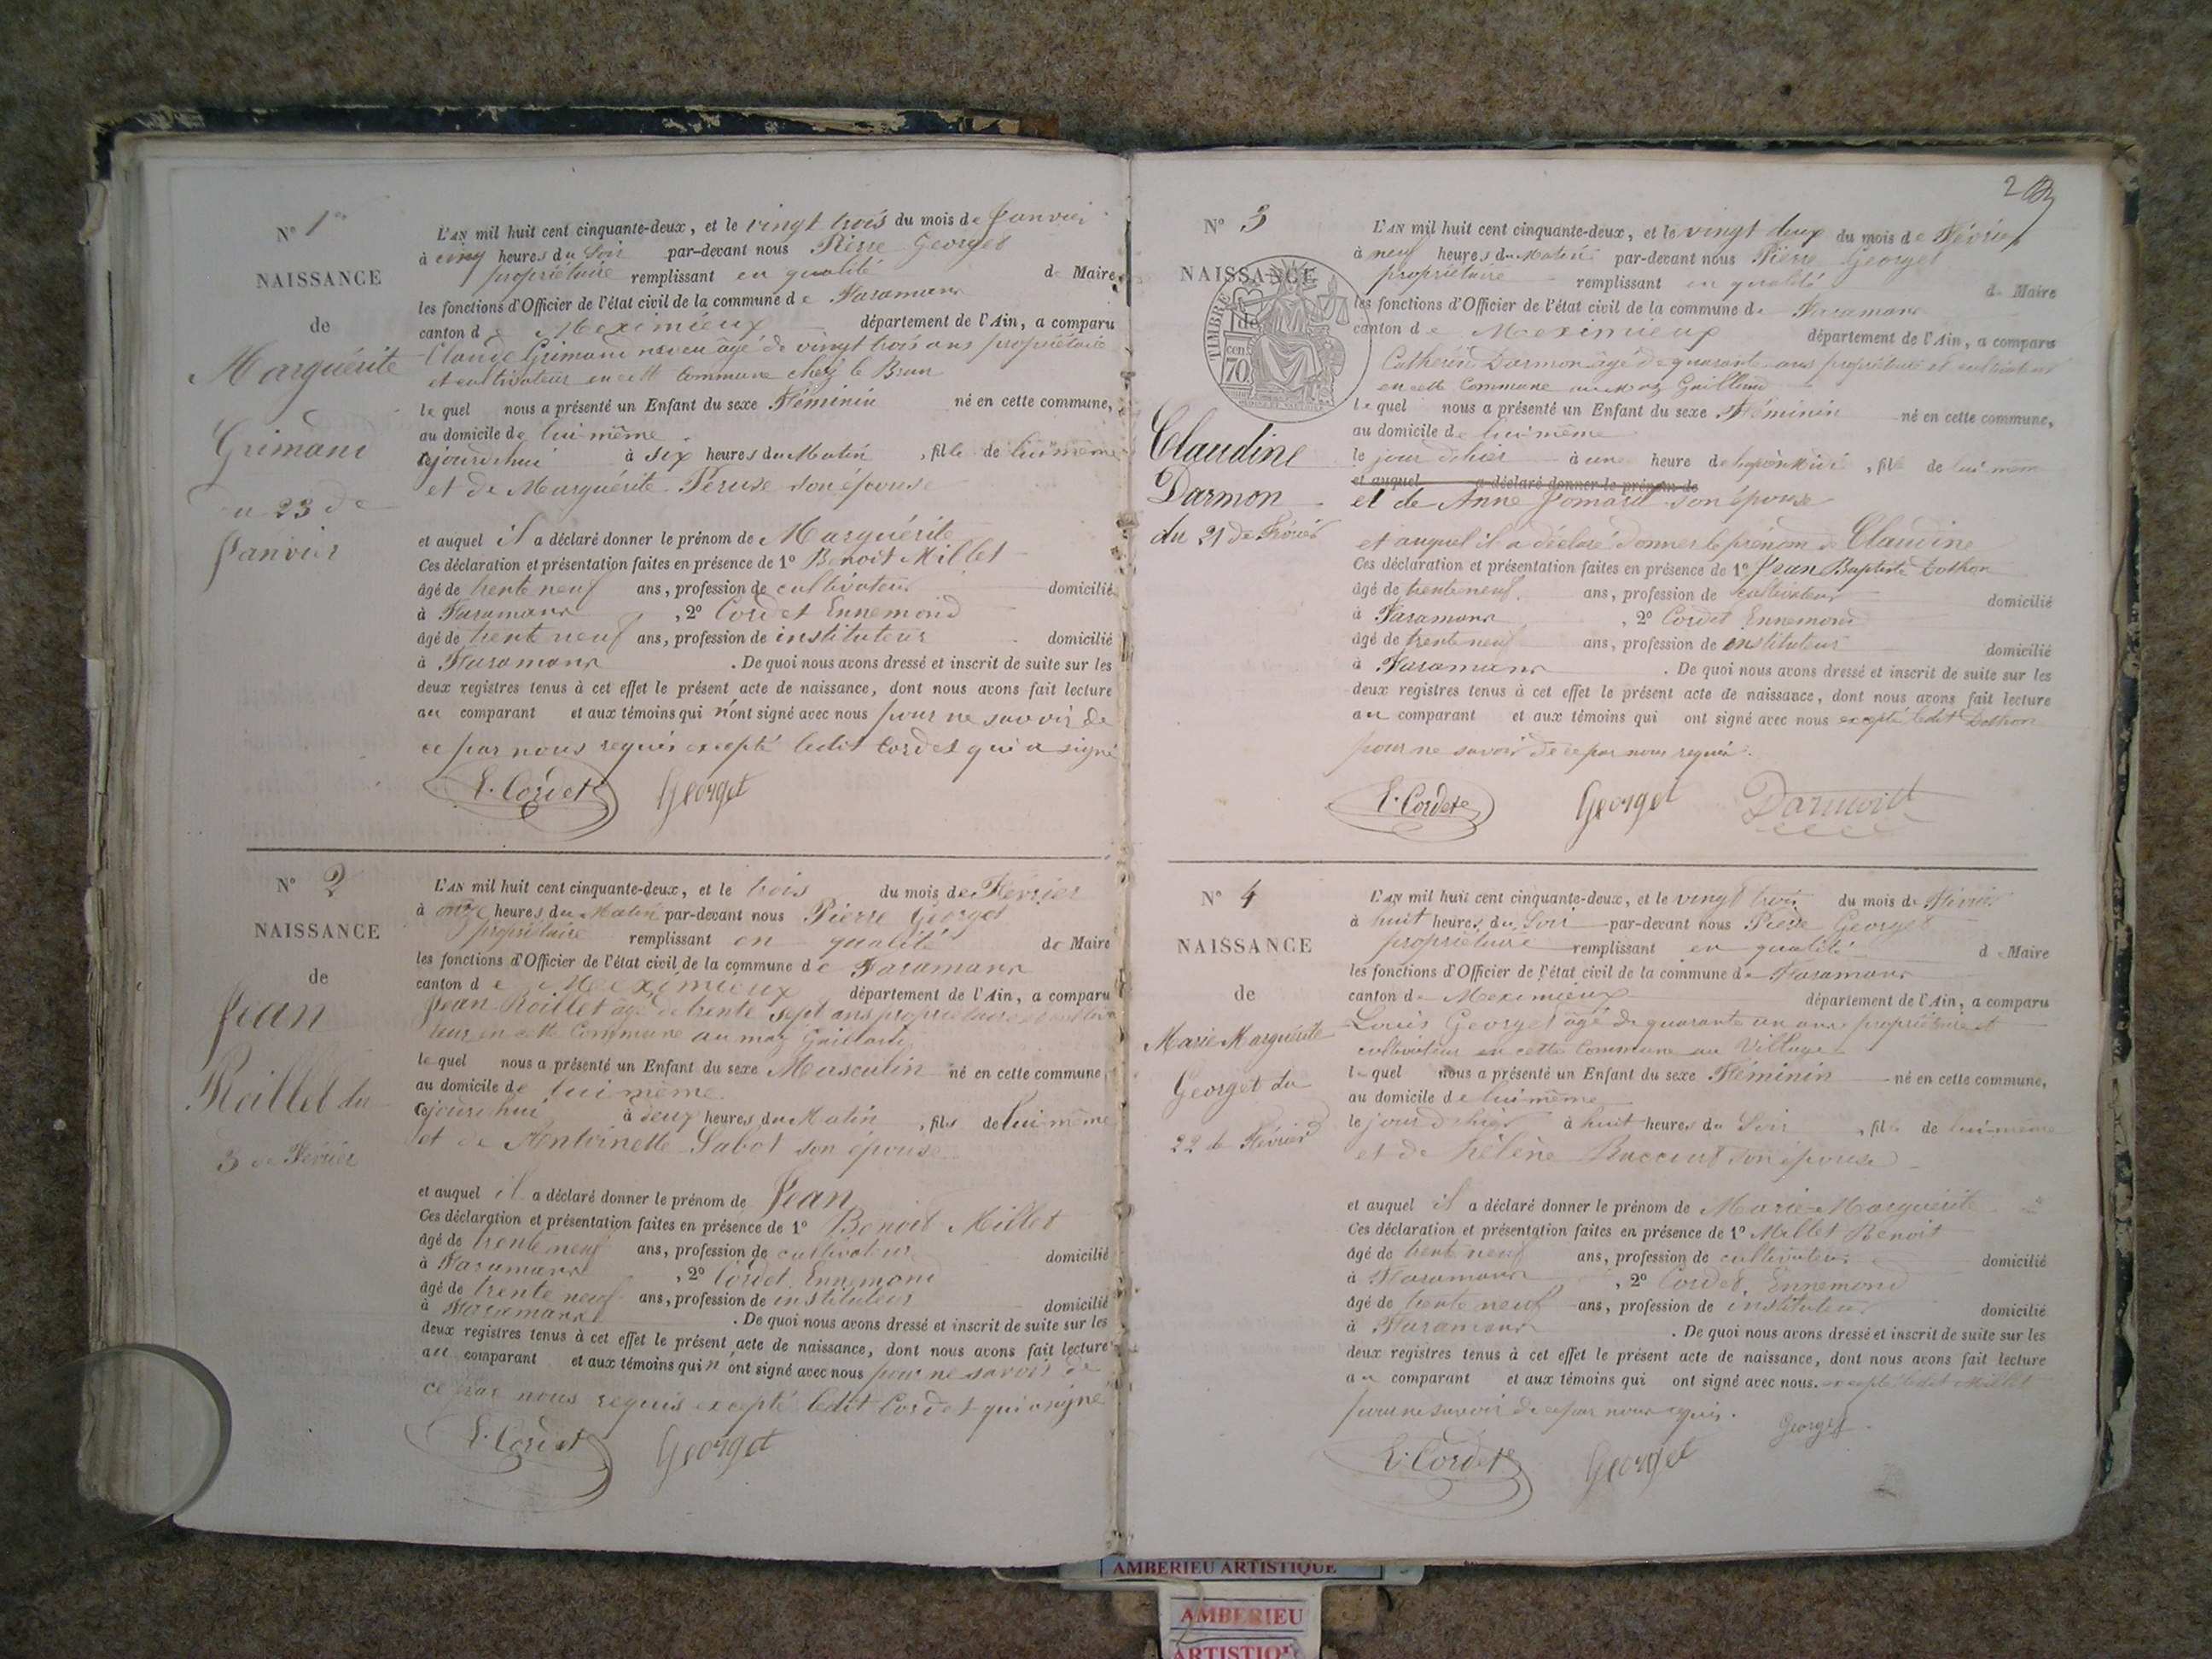 N° 1er
NAISSANCE
de
Marguérite
Grimand
du 23 de
Janvier
L'AN mil huit cent cinquante-deux, et le vingt trois du mois de Janvier
à cinq heures du Soir par-devant nous Pierre Georget
propriétaire remplissant en qualité de Maire
les fonctions d'Officier de l'état civil de la commune de Faramans
canton de Meximieux département de l'Ain, a comparu
Claude Grimand neveu âgé de vingt trois ans propriétaire
et cultivateur en cette Commune chez le Bran
lequel nous a présenté un Enfant du sexe Féminin né en cette commune,
au domicile de lui même
cejourd'hui à six heures du Matin, fille de lui même
et de Marguérite Péruse son épouse
et auquel il a déclaré donner le prénom de Marguérite
Ces déclaration et présentation faites en présence de 1° Benoit Millet
âgé de trente neuf ans, profession de cultivateur domicilié
à Faramans, 2° Cordet Ennemond
âgé de trente neuf ans, profession de instituteur domicilié
à Faramans. De quoi nous avons dressé et inscrit de suite sur les
deux registres tenus à cet effet le présent acte de naissance, dont nous avons fait lecture
au comparant et aux témoins qui n'ont signé avec nous pour ne savoir de
ce par nous requis excepté ledit Cordet qui a signé
E. Cordet Georget
N° 2
NAISSANCE
de
Jean
Roillet du
3 de Février
L'AN mil huit cent cinquante-deux, et le trois du mois de Février
à onze heures du Matin par-devant nous Pierre Georget
propriétaire remplissant en qualité de Maire
les fonctions d'Officier de l'état civil de la commune de Faramans
canton de Meximieux département de l'Ain, a comparu
Jean Roillet âgé de trente sept ans propriétaire et cultiva
teur en cette Commune au maz Gaillard
lequel nous a présenté un Enfant du sexe Masculin né en cette commune,
au domicile de lui même
cejourd'hui à deux heures du Matin, fils de lui même
et de Antoinette Sabot son épouse
et auquel il a déclaré donner le prénom de Jean
Ces déclaration et présentation faites en présence de 1° Benoit Millet
âgé de trente neuf ans, profession de cultivateur domicilié
à Faramans, 2° Cordet Ennemond
âgé de trente neuf ans, profession de instituteur domicilié
à Faramans. De quoi nous avons dressé et inscrit de suite sur les
deux registres tenus à cet effet le présent acte de naissance, dont nous avons fait lecture
au comparant et aux témoins qui n'ont signé avec nous pour ne savoir de
ce par nous requis excepté ledit Cordet qui a signé
E. Cordet Georget
2
N° 3
NAISSANCE
TIMBRE
1 de
cen
70
Claudine
Darmon
du 21 de Février
L'AN mil huit cent cinquante-deux, et le vingt deux du mois de Février
à neuf heures du Matin par-devant nous Pierre Georget
propriétaire remplissant en qualité de Maire
les fonctions d'Officier de l'état civil de la commune de Faramans
canton de Meximieux département de l'Ain, a comparu
Darmon âgé de quarante ans propriétaire et cultivateur
en cette Commune au maz Gaillard
lequel nous a présenté un Enfant du sexe Féminin né en cette commune,
au domicile de lui même
le jour d'hier à une heure de l'après Midi, fille de lui même
et auquel a déclaré donner le prénom de
et de Anne Jomard son épouse
et auquel il a déclaré donner le prénom de Claudine
Ces déclaration et présentation faites en présence de 1° Jean Baptiste Dothon
âgé de trente neuf ans, profession de cultivateur domicilié
à Faramans, 2° Cordet Ennemond
âgé de trente neuf ans, profession de instituteur domicilié
à Faramans. De quoi nous avons dressé et inscrit de suite sur les
deux registres tenus à cet effet le présent acte de naissance, dont nous avons fait lecture
au comparant et aux témoins qui ont signé avec nous excepté ledit Dothon
pour ne savoir de ce par nous requis.
E. Cordet Georget Darmond
N° 4
NAISSANCE
de
Marie Marguérite
Georget du
22 de Février
L'AN mil huit cent cinquante-deux, et le vingt trois du mois de Février
à huit heures du Soir par-devant nous Pierre Georget
propriétaire remplissant en qualité de Maire
les fonctions d'Officier de l'état civil de la commune de Faramans
canton de Meximieux département de l'Ain, a comparu
Louis Georget âgé de quarante un ans propriétaire et
cultivateur en cette Commune au Village
lequel nous a présenté un Enfant du sexe Féminin né en cette commune,
au domicile de lui même
le jour d'hier à huit heures du Soir, fille de lui même
et de hélène son épouse
et auquel il a déclaré donner le prénom de Marie Marguérite
Ces déclaration et présentation faites en présence de 1° Millet Benoit
âgé de trente neuf ans, profession de cultivateur domicilié
à Faramans, 2° Cordet Ennemond
âgé de trente neuf ans, profession de instituteur domicilié
à Faramans. De quoi nous avons dressé et inscrit de suite sur les
deux registres tenus à cet effet le présent acte de naissance, dont nous avons fait lecture
au comparant et aux témoins qui ont signé avec nous. excepté ledit Millet
pour ne savoir de ce par nous requis. Georget
E. Cordet Georget
AMBERIEU ARTISTIQUE
AMBERIEU
ARTISTIQUE